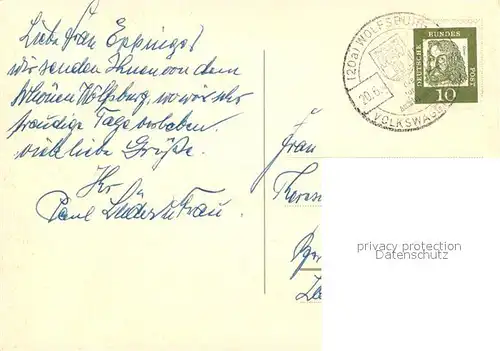 Liebe Frau Eppinge!
wir senden Ihnen von dem
schönen Wolfsburg, wo wir sehr
freudige Tage verleben.
viele liebe Grüße.
Ihr
Paul u. Frau.
(20a) WOLFSBURG
20.6.
VOLKSWAG
DEUTSCHE
BUNDES
POST
10
Frau
privacy protection
Datenschutz